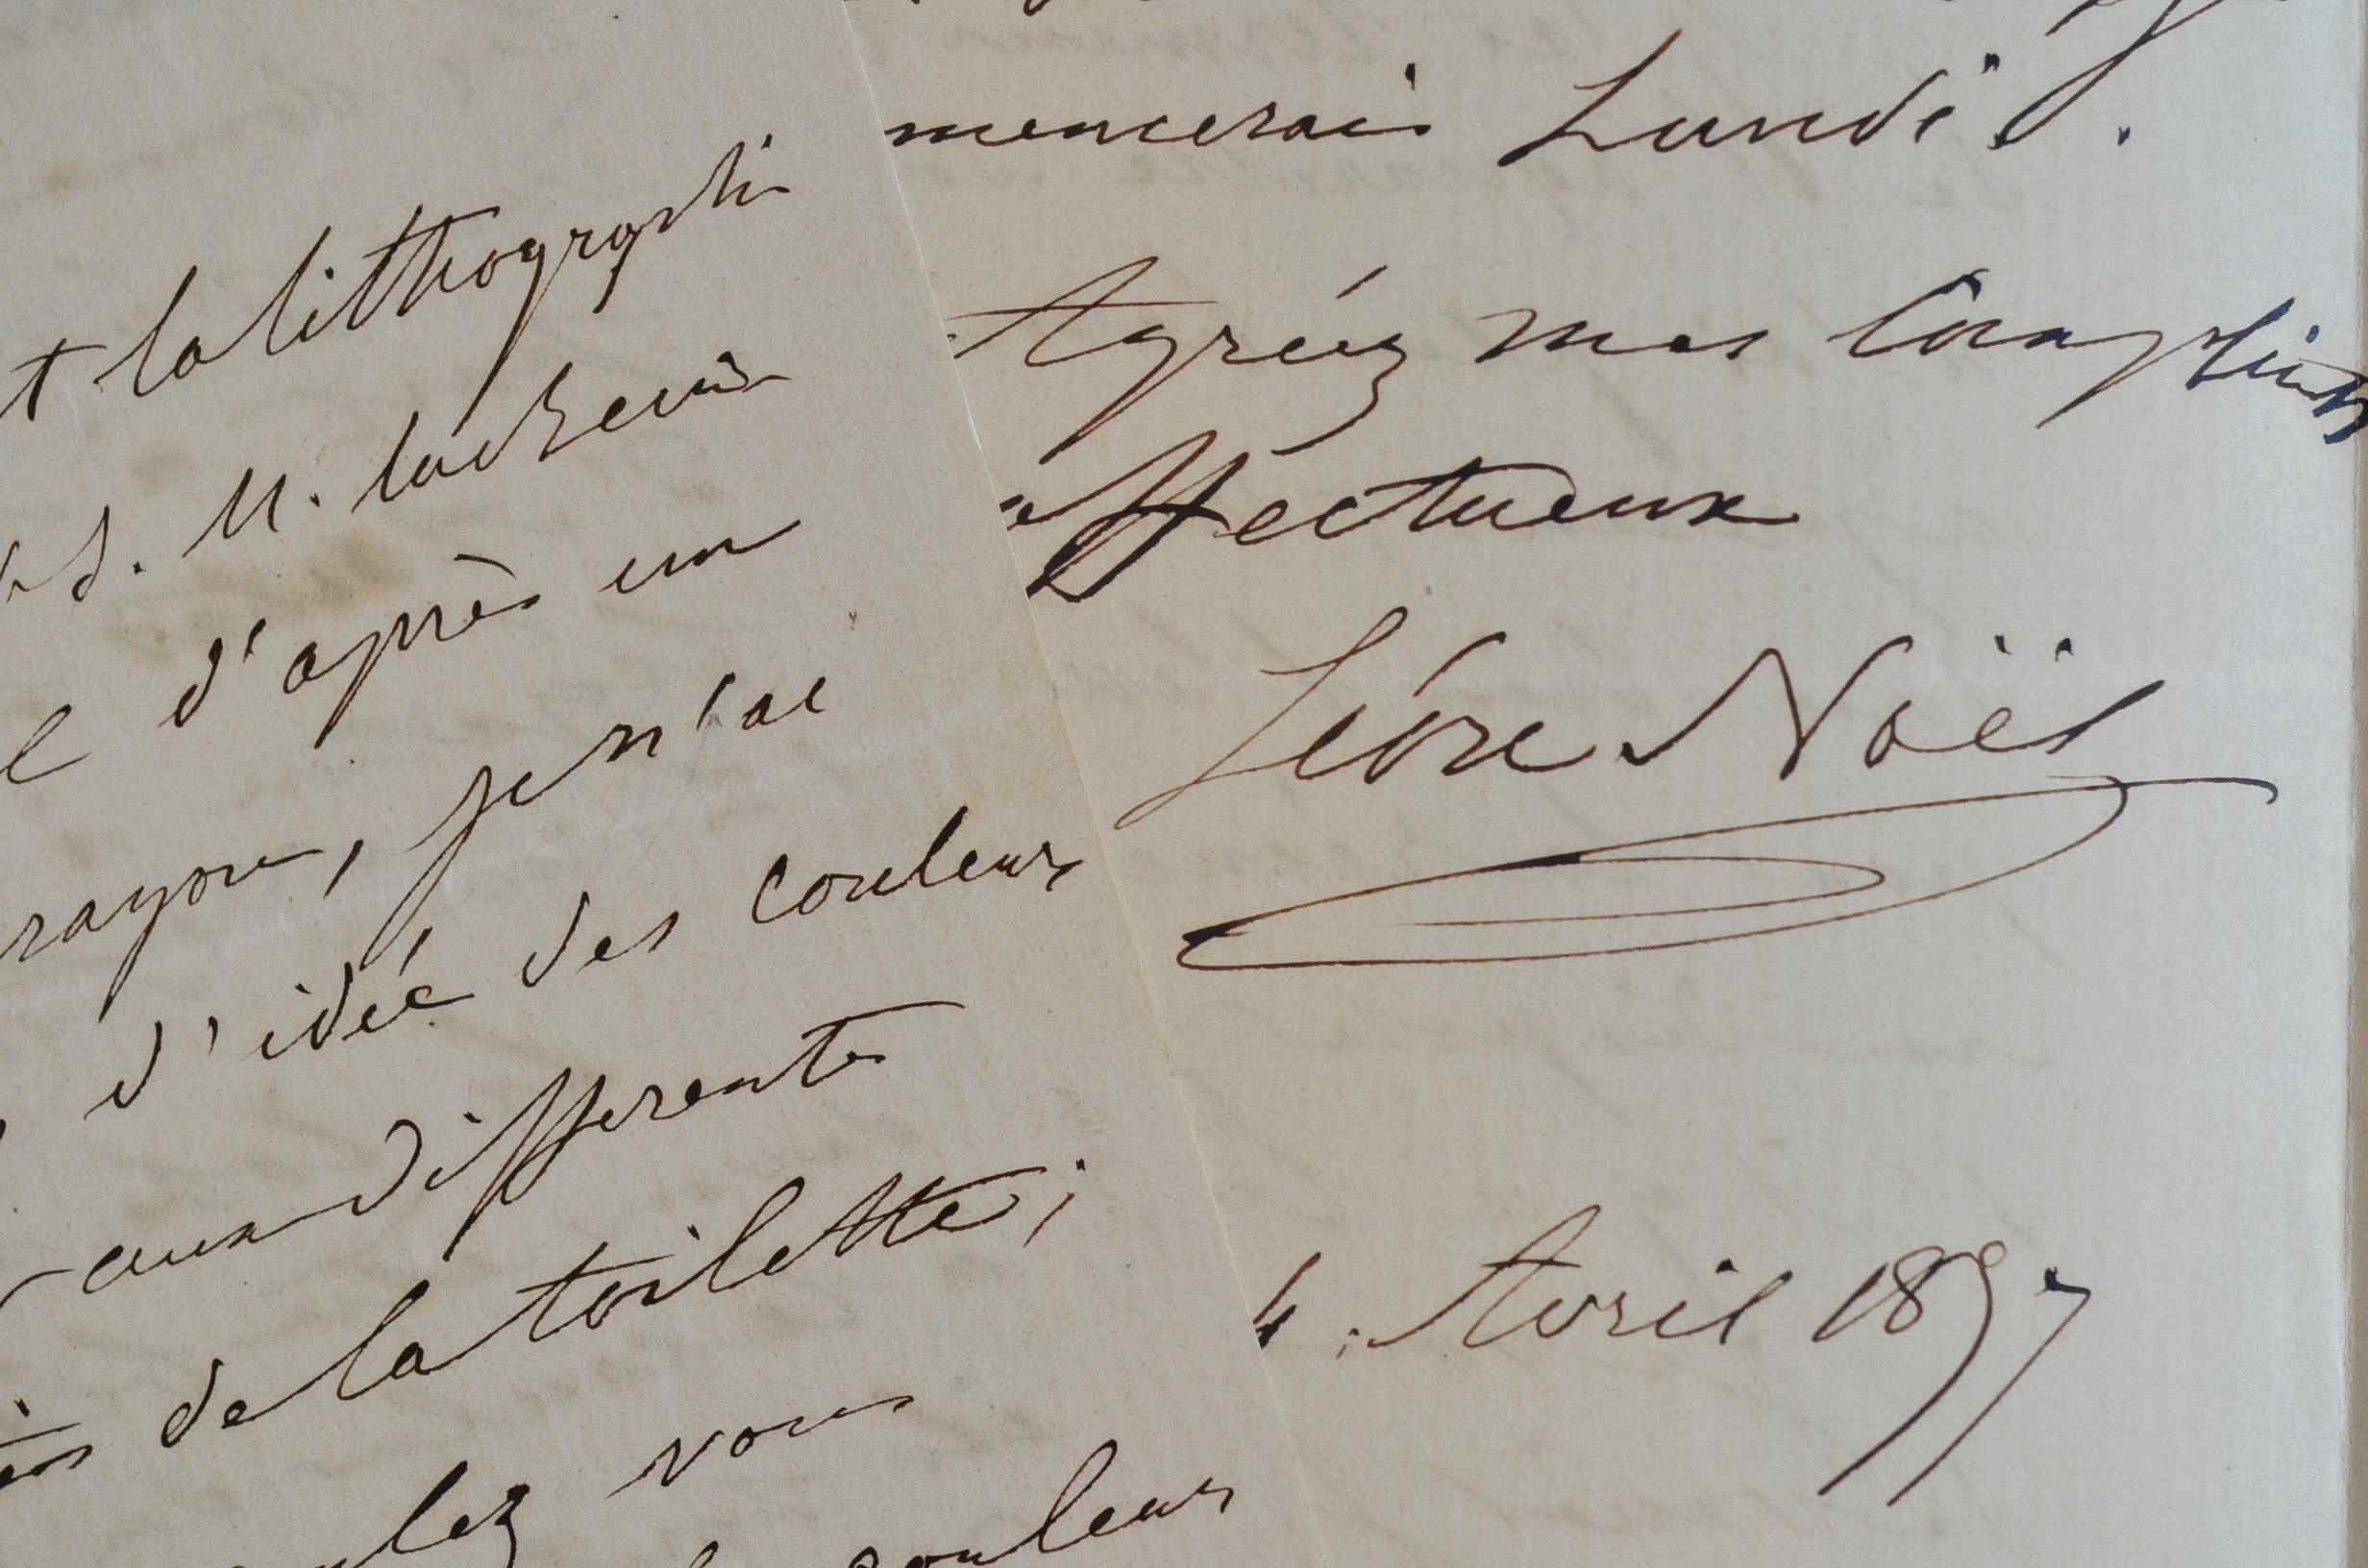 t la lithographi
S. M. la
d'après un
rayon, je n'ai
d'idée des couleurs
aux differents
de la toilette;
vous
couleurs
mencerais Lundi S.
Agréez mes Complimts
affectueux
Léon Noël
4. Avril 1857